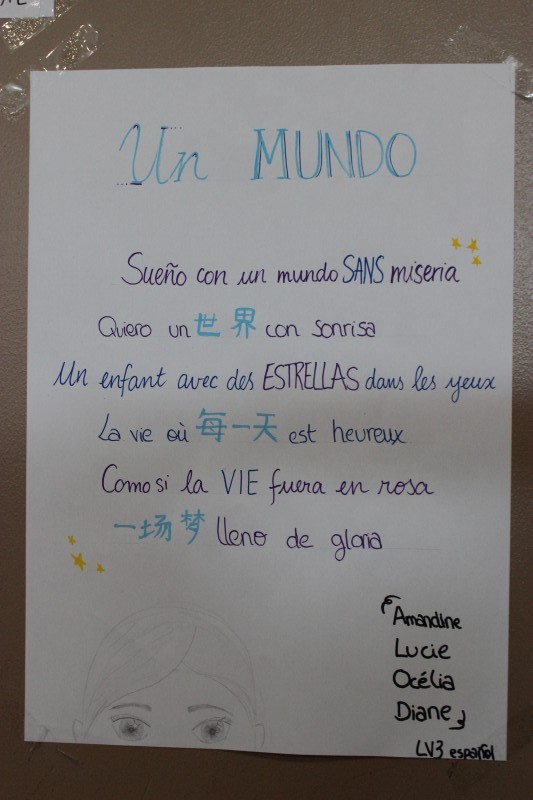 Un MUNDO
Sueño con un mundo SANS miseria
Quiero un 世界 con sonrisa
Un enfant avec des ESTRELLAS dans les yeux
La vie où 每一天 est heureux
Como si la VIE fuera en rosa
一场梦 lleno de gloria
Amandine
Lucie
Océlia
Diane
LV3 español